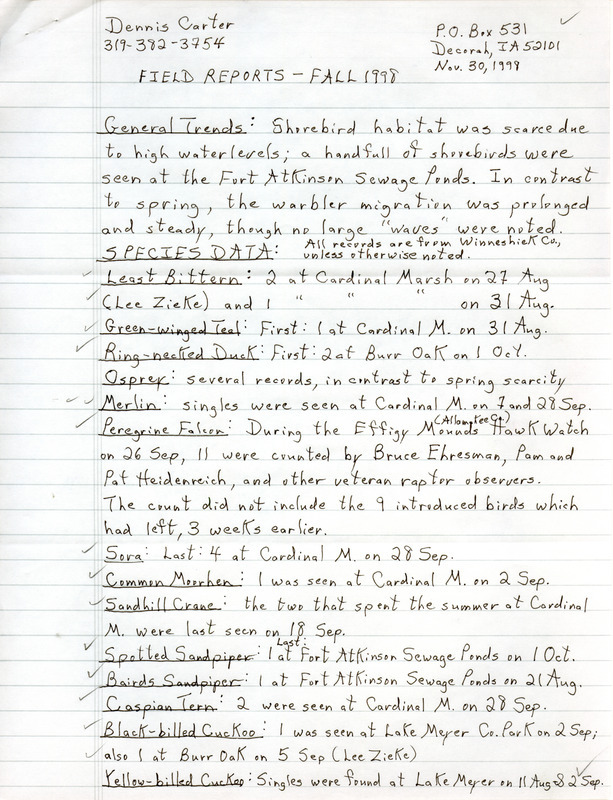 Dennis Carter
319-382-3754
P.O. Box 531
Decorah, IA 52101
Nov. 30, 1998
FIELD REPORTS - FALL 1998
General Trends: Shorebird habitat was scarce due
to high water levels; a handfull of shorebirds were
seen at the Fort Atkinson Sewage Ponds. In contrast
to spring, the warbler migration was prolonged
and steady, though no large "waves" were noted.
SPECIES DATA: All records are from Winneshiek Co.,
unless otherwise noted.
Least Bittern: 2 at Cardinal Marsh on 27 Aug
(Lee Zieke) and 1 " " " on 31 Aug.
Green-winged Teal: First: 1 at Cardinal M. on 31 Aug.
Ring-necked Duck: First: 2 at Burr Oak on 1 Oct.
Osprey: several records, in contrast to spring scarcity
Merlin: singles were seen at Cardinal M. on 7 and 28 Sep.
Peregrine Falcon: During the Effigy Mounds (Allamakee Co.) Hawk Watch
on 26 Sep, 11 were counted by Bruce Ehresman, Pam and
Pat Heidenreich, and other veteran raptor observers.
The count did not include the 9 introduced birds which
had left, 3 weeks earlier.
Sora: Last: 4 at Cardinal M. on 28 Sep.
Common Moorhen: 1 was seen at Cardinal M. on 2 Sep.
Sandhill Crane: the two that spent the summer at Cardinal
M. were last seen on 18 Sep.
Spotted Sandpiper: Last: 1 at Fort Atkinson Sewage Ponds on 1 Oct.
Bairds Sandpiper: 1 at Fort Atkinson Sewage Ponds on 21 Aug.
Caspian Tern: 2 were seen at Cardinal M. on 28 Sep.
Black-billed Cuckoo: 1 was seen at Lake Meyer Co. Park on 2 Sep;
also 1 at Burr Oak on 5 Sep (Lee Zieke)
Yellow-billed Cuckoo: Singles were found at Lake Meyer on 11 Aug & 2 Sep.